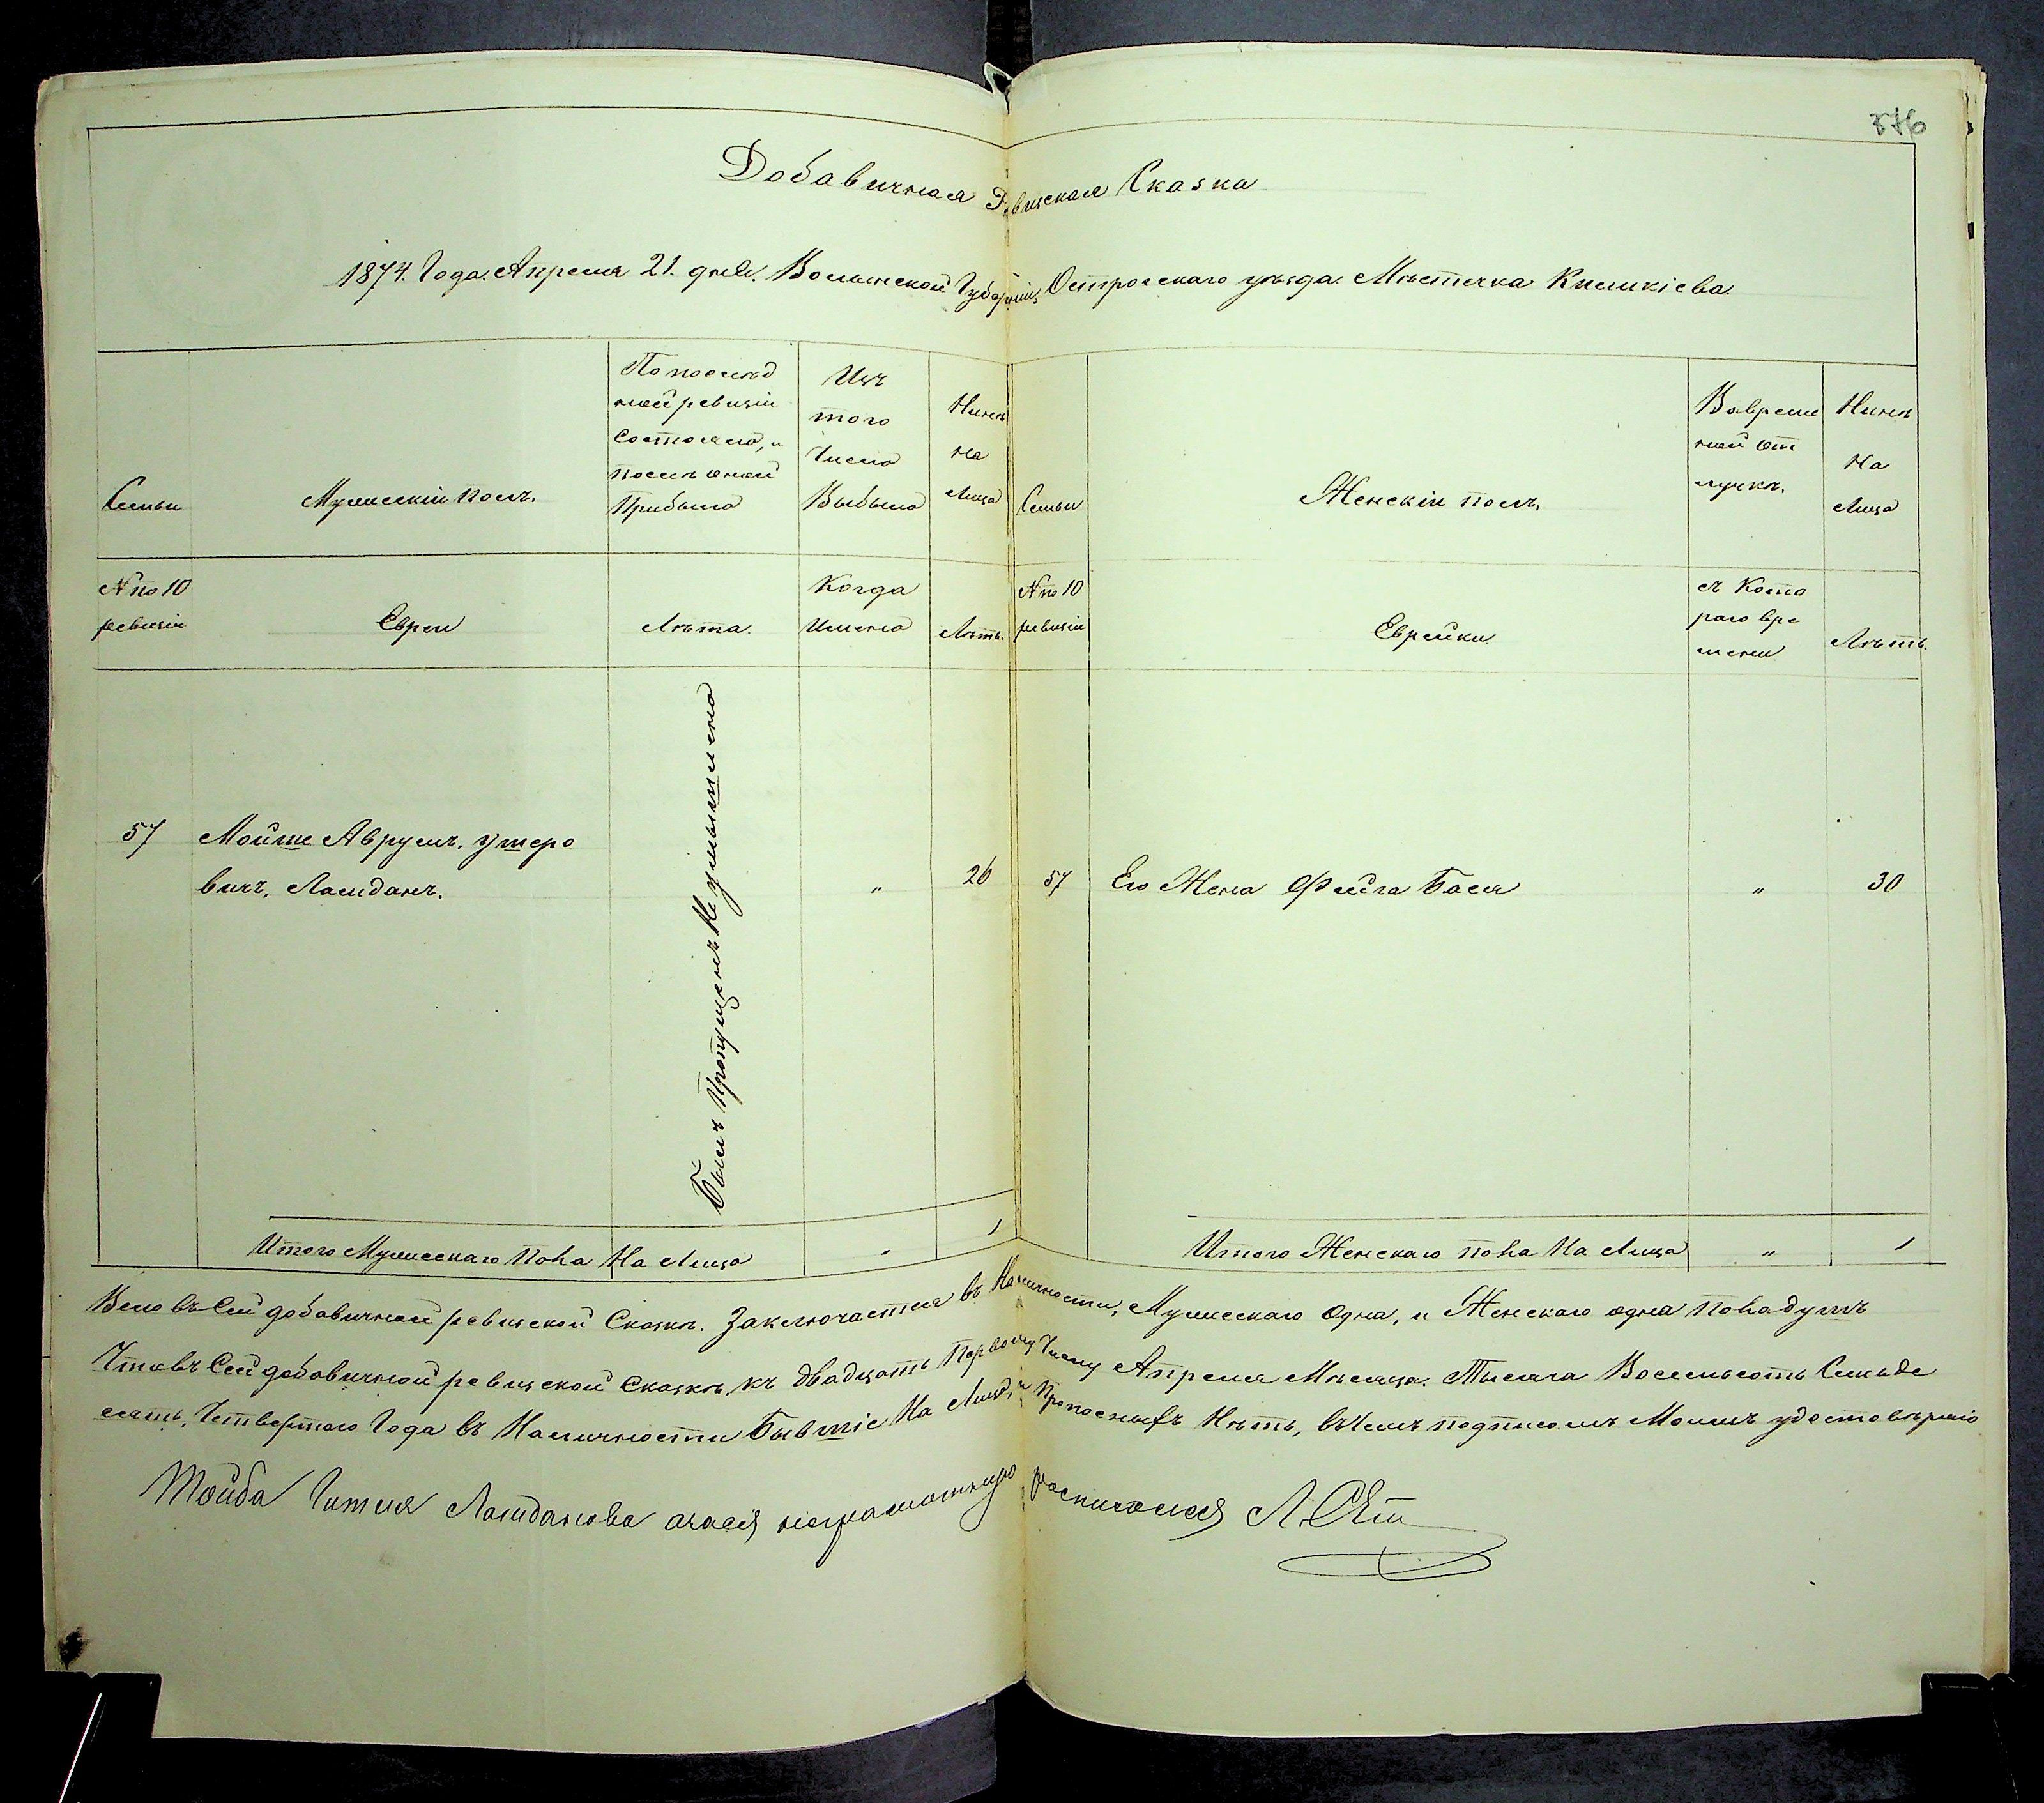 376
Добавичная Ревизская Сказка
1874. Года. Апреля 21. дня. Волынской Губерніи, Острогскаго уѣзда. Мѣстечка Киликіева.
Семьи
Мужескій полъ.
По послѣд
ней ревизіи
состояло, и
послѣ оной
Прибыло
Изъ
того
Числа
Выбыло
Нынѣ
на
Лицо
Семьи
Женскій полъ.
Во време
ной от
лучкѣ.
Нынѣ
На
Лицо
№ по 10
ревизіи
Евреи
Лѣта.
Когда
Именно
Лѣтъ.
№ по 10
ревизіи
Еврейки
съ Кото
раго вре
мени
Лѣтъ.
57
Мойше Аврумъ. Ушеро
вичъ, Ланданъ.
Былъ пропущенъ Не умышлено
"
26
57
Его Жена Фейга Бася
"
30
Итого Мужескаго пола На Лицо
"
1
Итого Женскаго пола На Лицо
"
1
Всего въ Сей добавичной ревизской Сказкѣ. Заключается въ Наличности, Мужескаго Одна, и Женскаго одна пола душъ
Что въ Сей добавичной ревизской Сказкѣ, къ двадцать Первому Числу Апреля Мѣсяца. Тысяча Восемьсотъ Семьде
сятъ, Четвертаго Года въ Наличности Бывшіе На Лицо, и Прописныхъ Нѣтъ, въ Чемъ подписомъ Моимъ удостовѣряю
Тойба Гитля Ланданова а за ей неграмотную росписался Л.